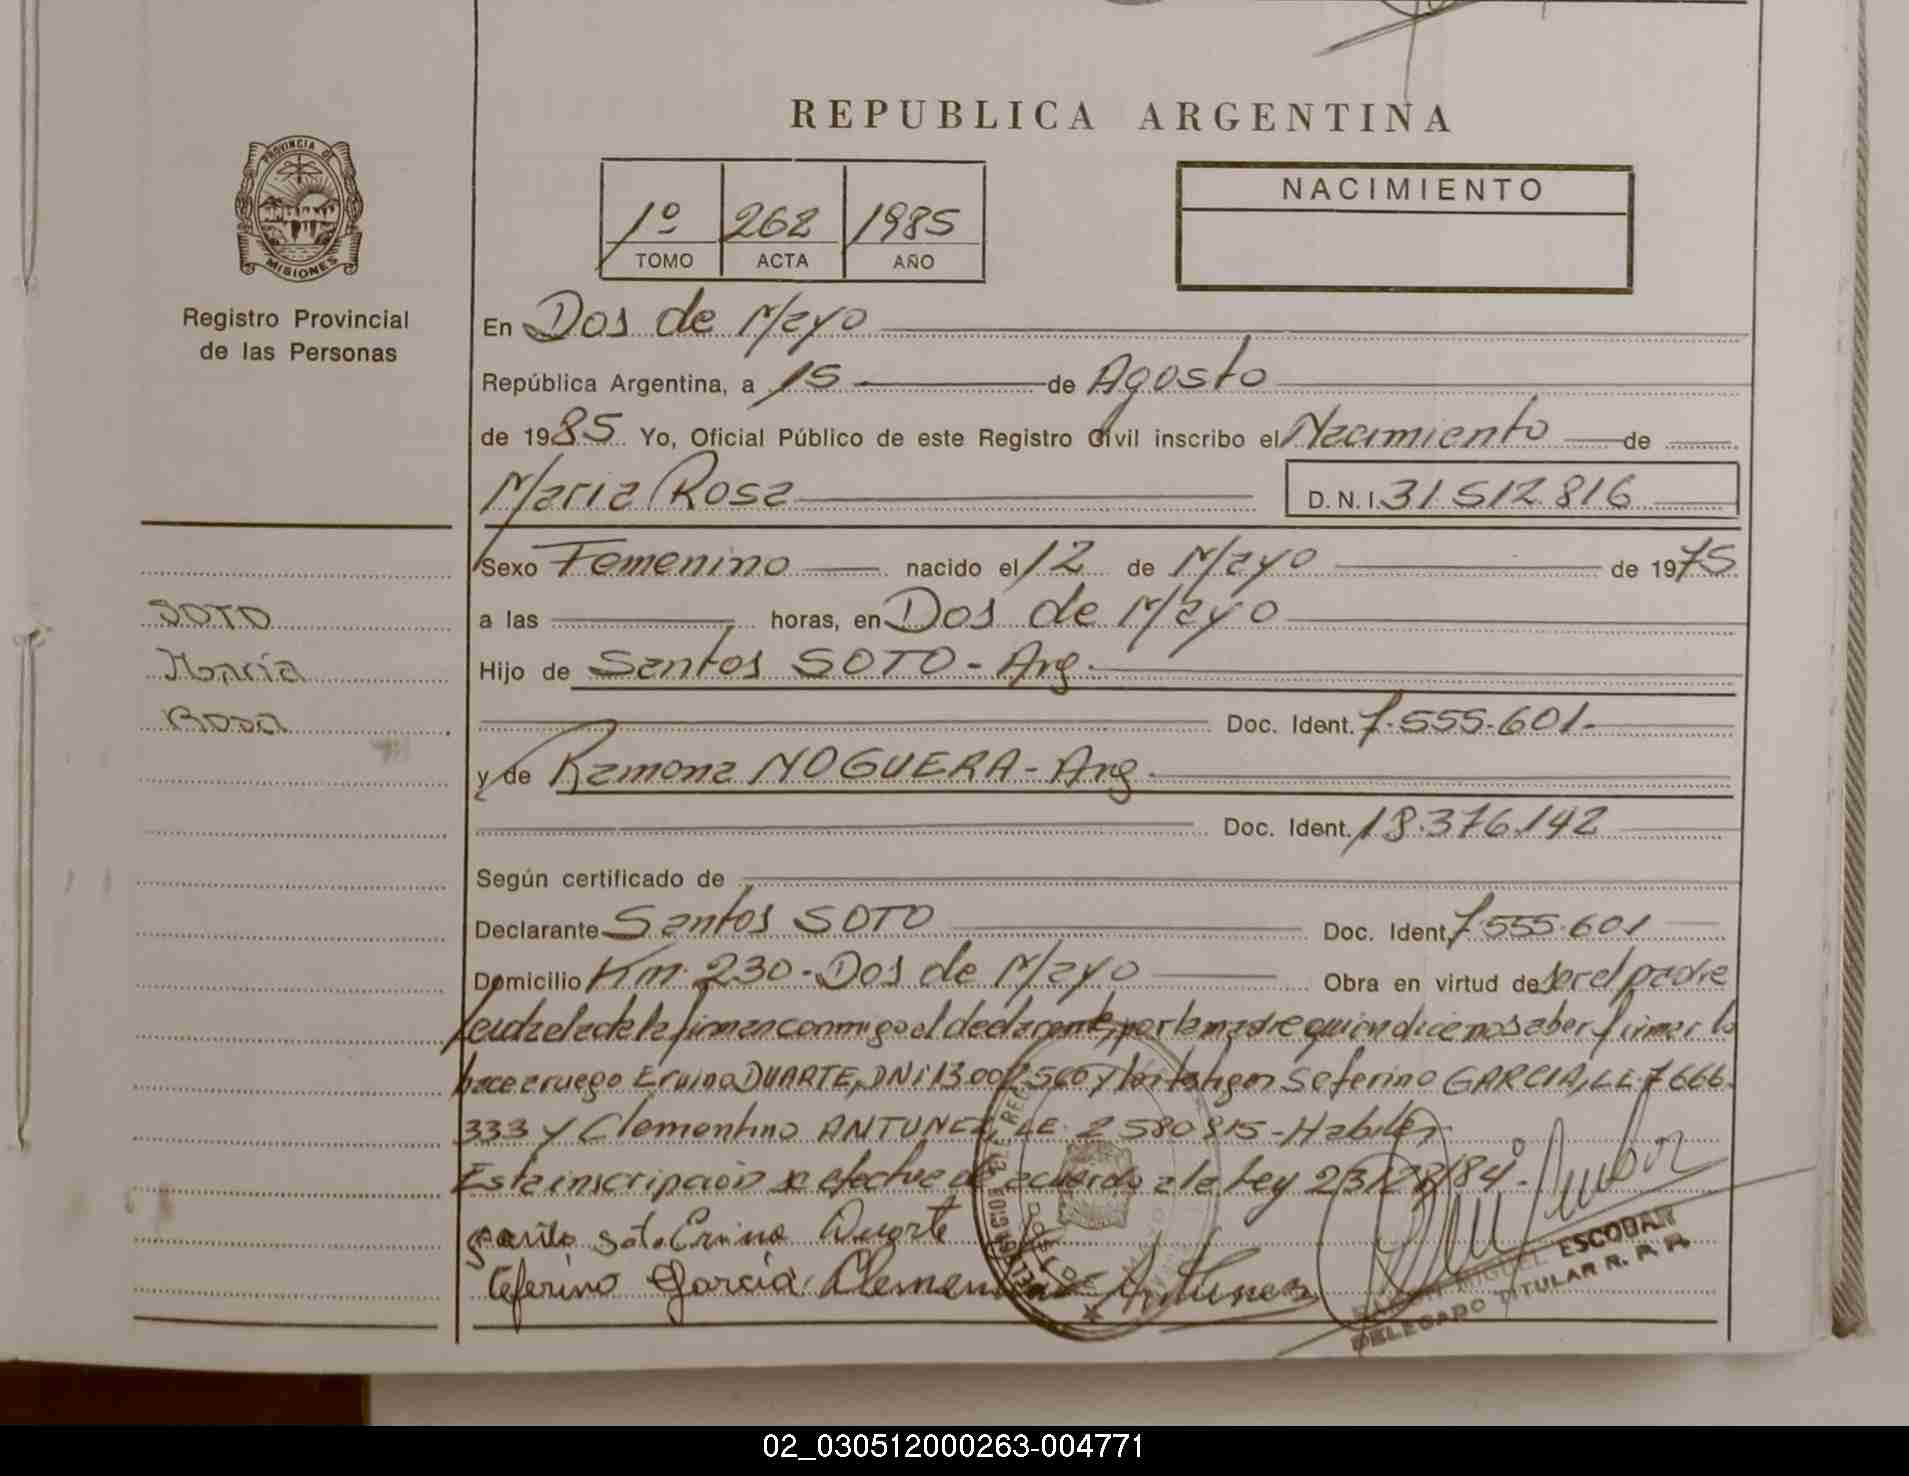 REPUBLICA ARGENTINA
PROVINCIA DE
MISIONES
Registro Provincial
de las Personas
1º 262 1985
TOMO ACTA AÑO
NACIMIENTO
En Dos de Mayo
República Argentina, a 15 de Agosto
de 1985 Yo, Oficial Público de este Registro Civil inscribo el Nacimiento de
Maria Rosa D.N.I. 31.512.816
Sexo Femenino nacido el 12 de Mayo de 1975
SOTO
María
Rosa
a las horas, en Dos de Mayo
Hijo de Santos SOTO - Arg.
Doc. Ident. 7.555.601.-
y de Ramona NOGUERA - Arg.
Doc. Ident. 18.376.142
Según certificado de
Declarante Santos SOTO Doc. Ident. 7.555.601
Domicilio Km. 230 - Dos de Mayo Obra en virtud de ser el padre
Leída el acta la firman conmigo el declarante, por la madre quien dice no saber firmar lo
hace a ruego Eruino DUARTE, DNI 13.002.560 y los testigos Seferino GARCIA, LE. 7.666.
333 y Clementino ANTUNEZ, LE. 2.580.815 - Habiles
Esta inscripción se efectua de acuerdo a la Ley 23.128/84.
Santo Soto Eruino Duarte
Ceferino García Clementino Antunez
MIGUEL ESCOBAR
DELEGADO TITULAR R. P. P.
02_030512000263-004771